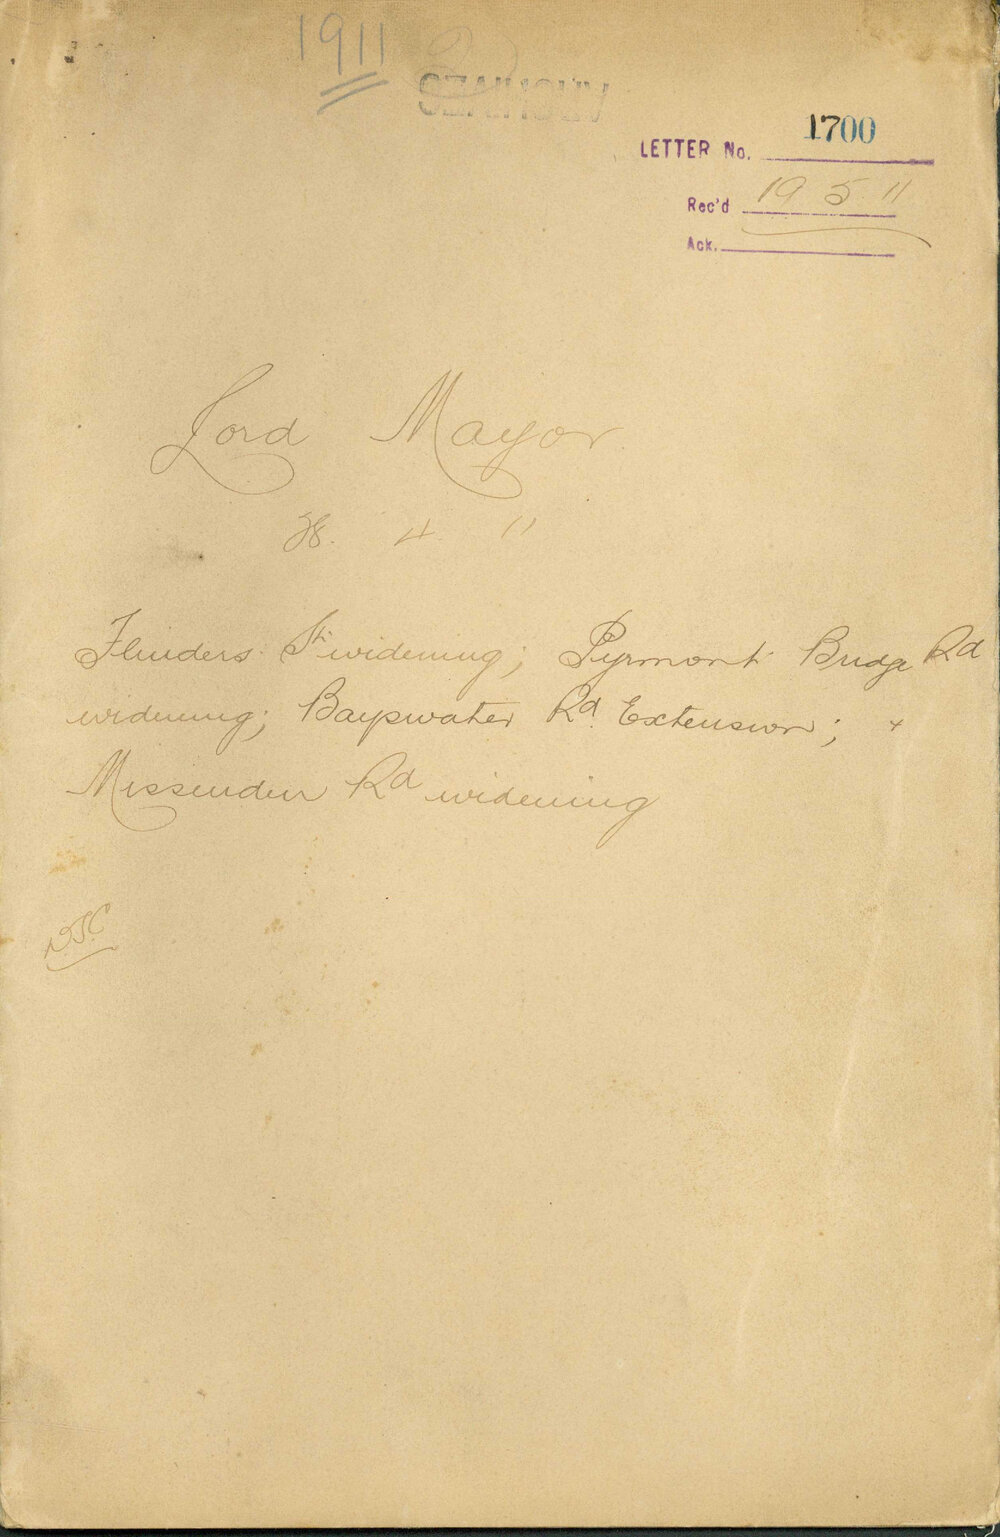 1911
LETTER No. 1700
Rec'd 19 5 11
Ack.
Lord Mayor
28. 4. 11
Flinders St widening; Pyrmont Bridge Rd
widening; Bayswater Rd. Extension; +
Missenden Rd widening